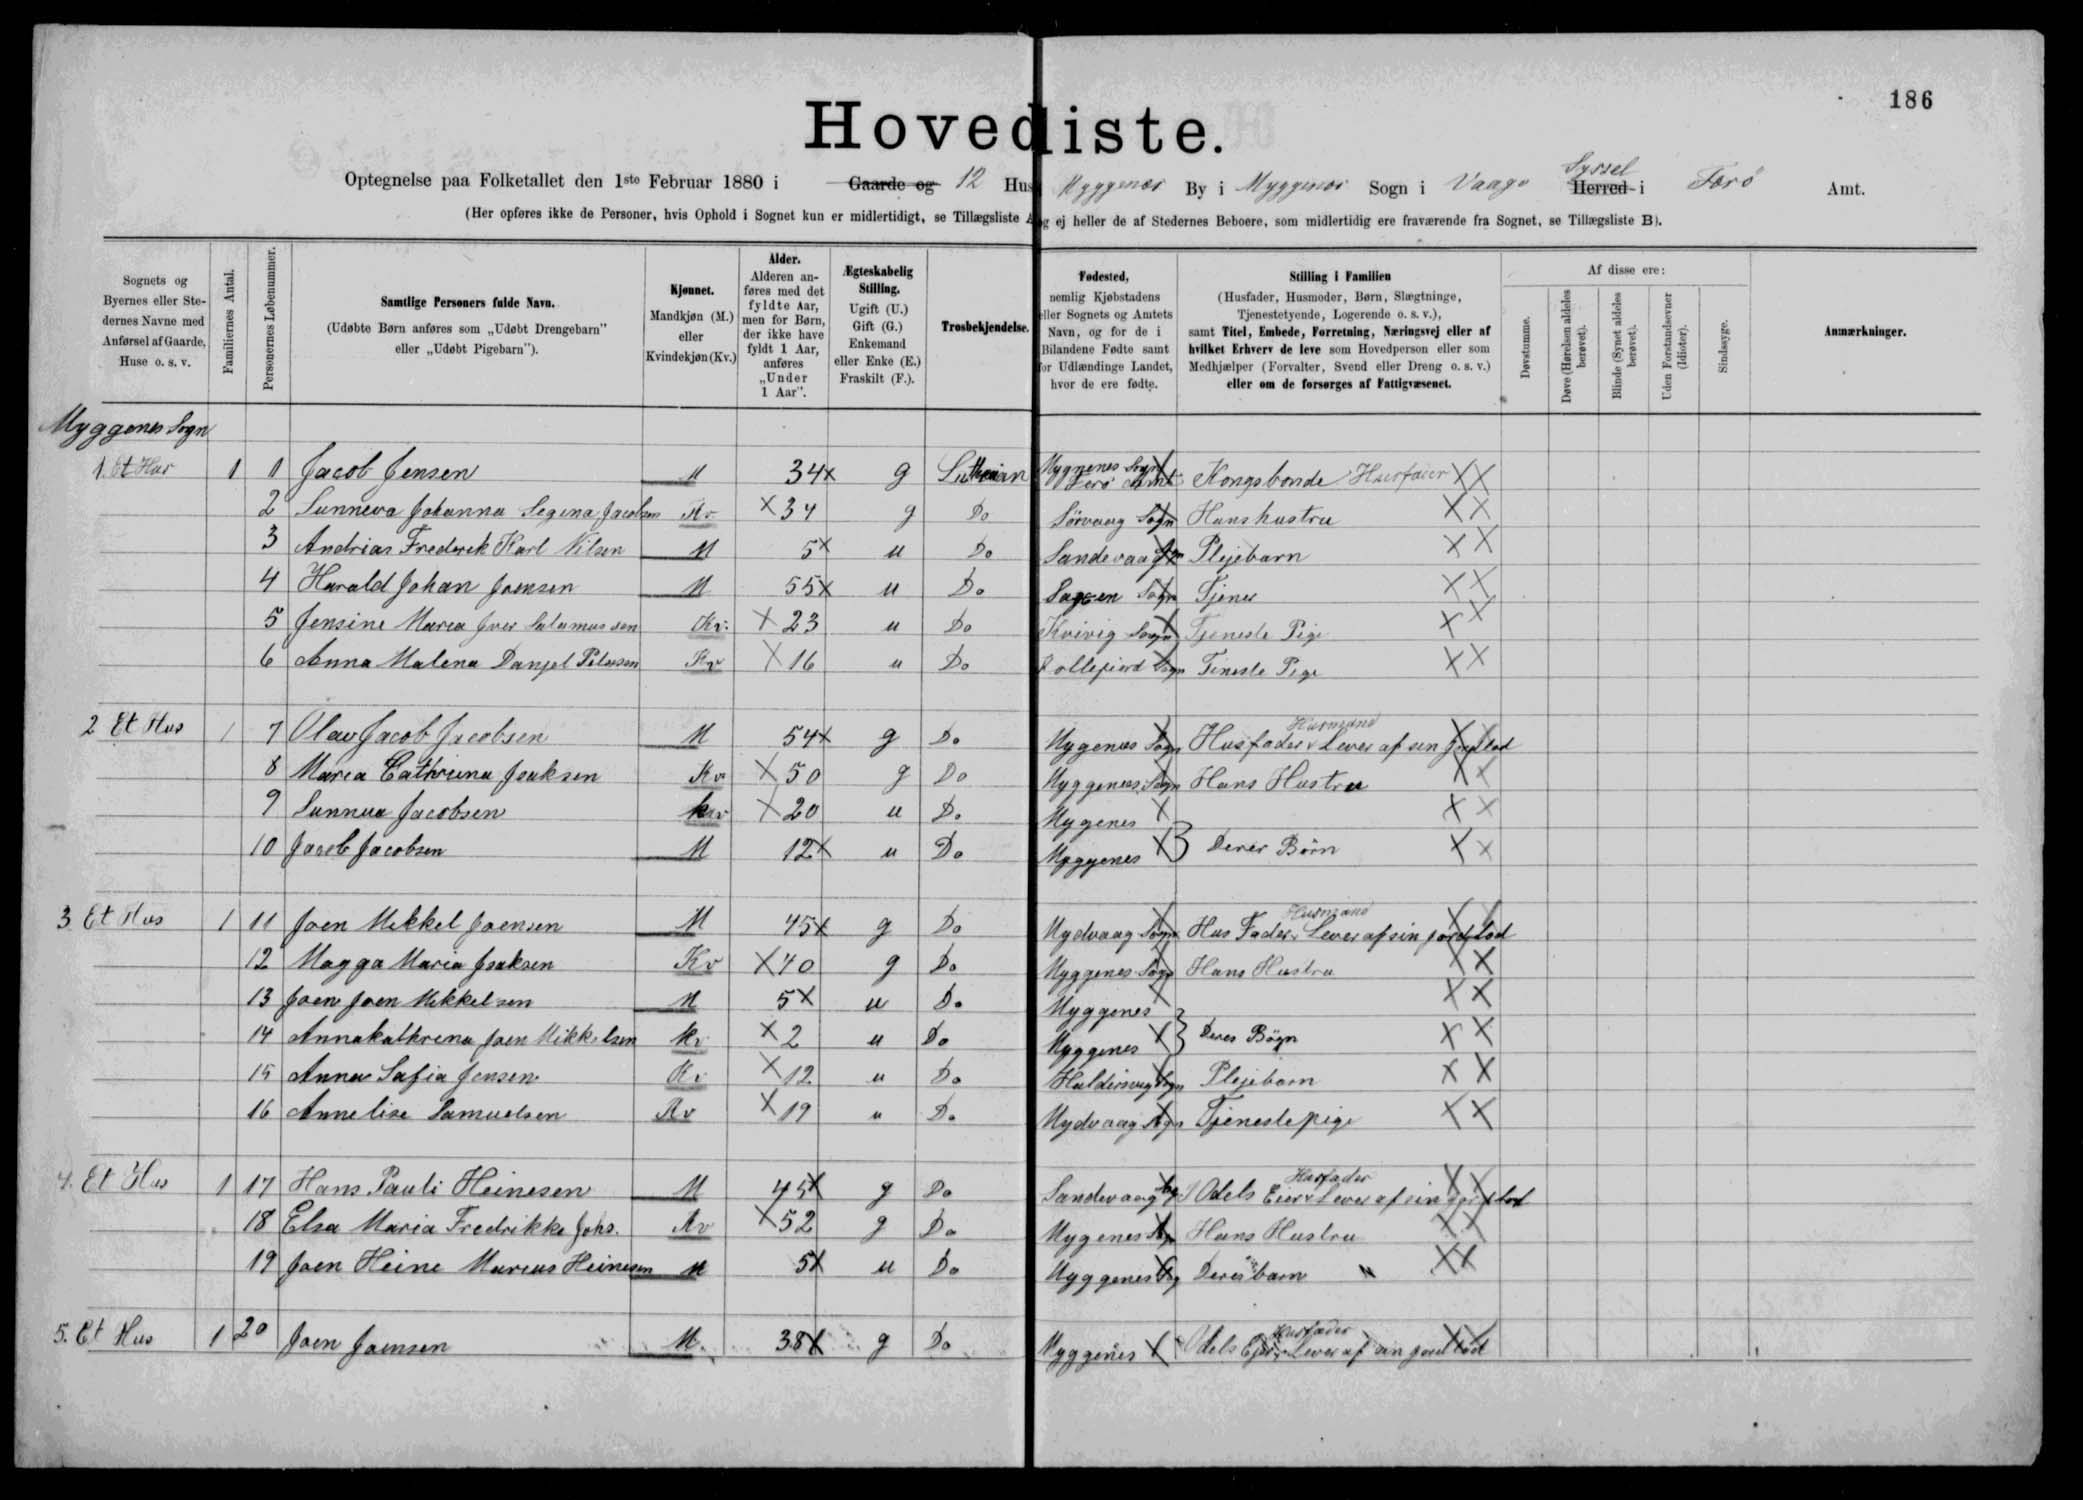 186
Hovedliste.
Optegnelse paa Folketallet den 1ste Februar 1880 i Gaarde og 12 Hus Myggenæs By i Myggenæs Sogn i Vaagø Syssel Herred i Færø Amt.
(Her opføres ikke de Personer, hvis Ophold i Sognet kun er midlertidigt, se Tillægsliste A og ej heller de af Stedernes Beboere, som midlertidig ere fraværende fra Sognet, se Tillægsliste B).
Sognets og Byernes eller Stedernes Navne med Anførsel af Gaarde, Huse o. s. v.
Familiernes Antal.
Personernes Løbenummer.
Samtlige Personers fulde Navn.
(Udøbte Børn anføres som „Udøbt Drengebarn" eller „Udøbt Pigebarn").
Kjønnet.
Mandkjøn (M.) eller Kvindekjøn (Kv.)
Alder.
Alderen anføres med det fyldte Aar, men for Børn, der ikke have fyldt 1 Aar, anføres „Under 1 Aar".
Ægteskabelig Stilling.
Ugift (U.) Gift (G.) Enkemand eller Enke (E.) Fraskilt (F.).
Trosbekjendelse.
Fødested,
nemlig Kjøbstadens eller Sognets og Amtets Navn, og for de i Bilandene Fødte samt for Udlændinge Landet, hvor de ere fødte.
Stilling i Familien
(Husfader, Husmoder, Børn, Slægtninge, Tjenestetyende, Logerende o. s. v.),
samt Titel, Embede, Forretning, Næringsvej eller af hvilket Erhverv de leve som Hovedperson eller som Medhjælper (Forvalter, Svend eller Dreng o. s. v.) eller om de forsørges af Fattigvæsenet.
Af disse ere:
Døvstumme.
Døve (Hørelsen aldeles berøvet).
Blinde (Synet aldeles berøvet).
Uden Forstandsevner (Idioter).
Sindssyge.
Anmærkninger.
Myggenes Sogn
1. Et Hus 1 1 Jacob Jensen M 34 x g Lutherian Mygnenes Sogn Ferø Amt Kongsbonde Husfader X X
2 Sunneva Johanna Segina Jacobsen Kv x 34 g Do Sörvaag Sogn Hans hustru X X
3 Andrias Frederek Karl Nilsen M 5 x u Do Sandevaag Plejebarn X X
4 Harald Johan Joensen M 55 x u Do Sogn Tjener X X
5 Jensine Maria Joer Salamonsen Kv. x 23 u Do Kvivig Sogn Tjeneste Pige X X
6 Anna Malena Danjel Petersen Kv x 16 u Do Kollefiord Sogn Tineste Pige X X
2 Et Hus 1 7 Olav Jacob Jacobsen M 54 x g Do Mygenes Sogn Husfader Husmand Lever af sin jordlod X X
8 Maria Cathrina Isaksen Kv x 50 g Do Myggenes Sogn Hans Hustru X X
9 Sunnva Jacobsen kv x 20 u Do Mygenes X X X
10 Jacob Jacobsen M 12 x u Do Myggenes X } Deres Börn X X
3 Et Hus 1 11 Joen Mikkel Joensen M 45 x g Do Mydvaag Sogn Hus Fader Husmand Lever af sin jordlod X X
12 Magga Maria Isaksen Kv x 40 g Do Myggenes Sogn Hans Hustru X X
13 Joen Joen Mikkelsen M 5 x u Do Myggenes X X X
14 Annakathrina Joen Mikkelsen Kv x 2 u Do Myggenes X } Deres Börn X X
15 Anna Safia Jensen Kv x 12 u Do Haldersvig Sogn Plejebarn X X
16 Annelise Samuelsen Kv x 19 u Do Mydvaag Sogn Tjenestepige X X
4. Et Hus 1 17 Hans Pauli Heinesen M 45 x g Do Sandevaag Sog Odels Eier Husfader Lever af sin jordlod X X
18 Elsa Maria Fredrikke Johs. Kv x 52 g Do Mygenes Sogn Hans Hustru X X
19 Joen Heine Marius Heinesen M 5 x u Do Myggenes Sog Deres barn " X X
5. Et Hus 1 20 Joen Joensen M. 38 x g Do Myggenes X Odels Ejer Husfader Lever af sin jordlod X X